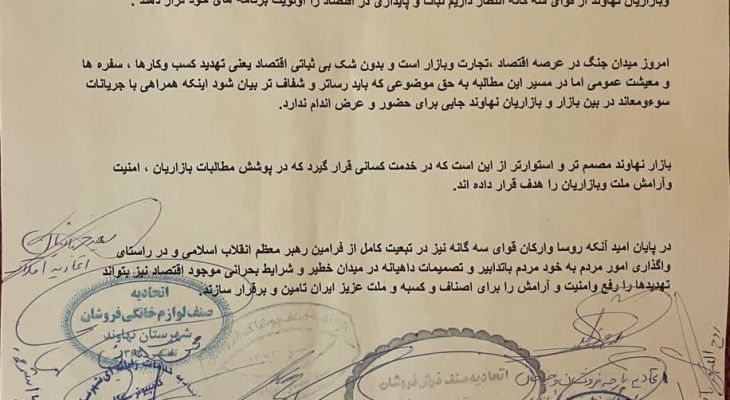 وبازاریان نهاوند از قوای سه گانه انتظار داریم ثبات و پایداری در اقتصاد را اولویت برنامه های خود قرار دهند .
امروز میدان جنگ در عرصه اقتصاد ،تجارت وبازار است و بدون شک بی ثباتی اقتصاد یعنی تهدید کسب وکارها ، سفره ها
و معیشت عمومی اما در مسیر این مطالبه به حق موضوعی که باید رساتر و شفاف تر بیان شود اینکه همراهی با جریانات
سوءومعاند در بین بازار و بازاریان نهاوند جایی برای حضور و عرض اندام ندارد.
بازار نهاوند مصمم تر و استوارتر از این است که در خدمت کسانی قرار گیرد که در پوشش مطالبات بازاریان ، امنیت
وآرامش ملت وبازاریان را هدف قرار داده اند.
در پایان امید آنکه روسا وارکان قوای سه گانه نیز در تبعیت کامل از فرامین رهبر معظم انقلاب اسلامی و در راستای
واگذاری امور مردم به خود مردم باتدابیر و تصمیمات داهیانه در میدان خطیر و شرایط بحرانی موجود اقتصاد نیز بتواند
تهدیدها را رفع وامنیت و آرامش را برای اصناف و کسبه و ملت عزیز ایران تامین و برقرار سازند.
اتحادیه املاک
اتحادیه
صنف لوازم خانگی فروشان
شهرستان نهاوند
اتحادیه صنف فرش فروشان